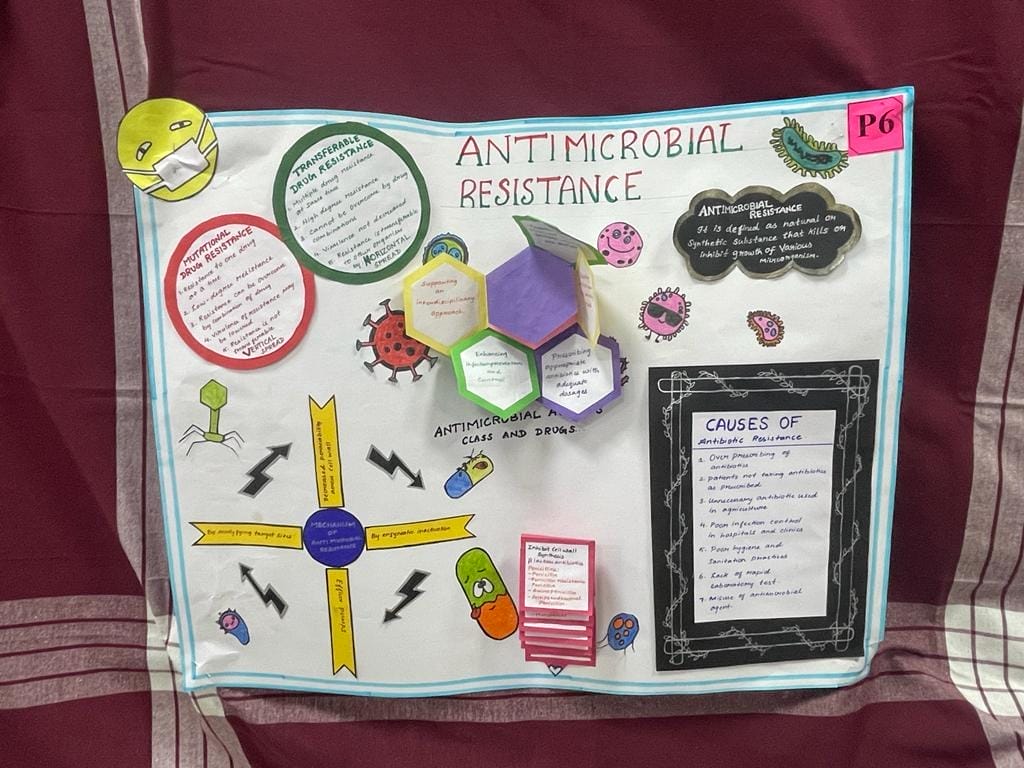 P6
ANTIMICROBIAL
RESISTANCE
TRANSFERABLE
DRUG RESISTANCE
1. Multiple drug resistance
at same time
2. High degree resistance
3. Cannot be overcome by drug
combinations
4. Virulence not decreased
5. Resistance is transferable
to other organism
by HORIZONTAL
SPREAD
MUTATIONAL
DRUG RESISTANCE
1. Resistance to one drug
at a time
2. Low-degree resistance
3. Resistance can be overcome
by combination of drug
4. Virulence of resistance may
be lowered
5. Resistance is not
transferable
VERTICAL
SPREAD
ANTIMICROBIAL
RESISTANCE
It is defined as natural or
Synthetic Substance that kills or
Inhibit growth of Various
Microorganism.
Supporting
an
interdisciplinary
approach.
Enhancing
Infection prevention
and
Control
Prescribing
appropriate
antibiotics with
adequate
dosages
ANTIMICROBIAL
CLASS AND DRUGS...
Decreased permeability
across cell wall
By modifying target sites
MECHANISM
OF
ANTIMICROBIAL
RESISTANCE
By enzymatic inactivation
Efflux pumps
Inhibit Cell wall
Synthesis
β lactam antibiotics
Penicillins:
- Penicillin
- Penicillin Resistance
Penicillin
- Aminopenicillin
- Antipseudomonal
Penicillin.
CAUSES OF
Antibiotic Resistance
1. Over Prescribing of
antibiotics
2. patients not taking antibiotics
as prescribed
3. Unnecessary antibiotic used
in agriculture
4. Poor infection control
in hospitals and clinics
5. Poor hygiene and
Sanitation practices
6. Lack of rapid
Laboratory test.
7. Misuse of antimicrobial
agent.